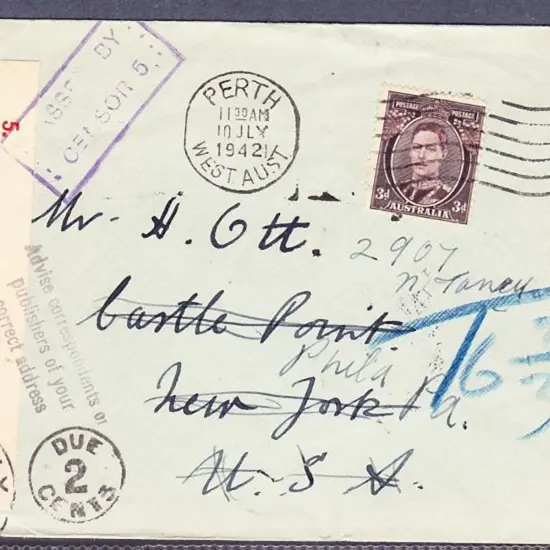 PASSED BY
CENSOR 5
5.
PERTH
11 30 AM
10 JLY
1942
WEST AUST
POSTAGE POSTAGE
3d AUSTRALIA 3d
Mr H. Ott.
2907
N Taney
Castle Point
Phila
New York Pa.
U. S. A.
T 6
Advise correspondents or
publishers of your
correct address
DUE
2
CENTS